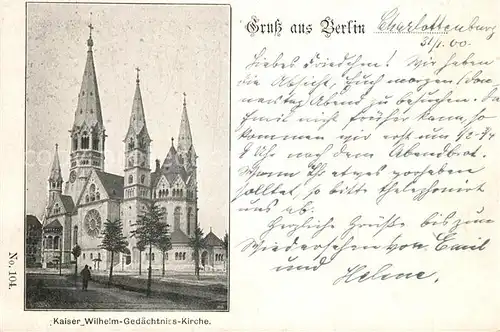 Gruß aus Berlin
Charlottenburg
31/1.00.
Liebes Friedchen! Wir haben
die Absicht, Euch morgen, Don-
nerstag Abend zu besuchen. Da
Emil nicht früher kann, so
kommen wir erst um
Uhr nach dem Abendbrot.
Wenn Ihr etwas vorhaben
solltet, so bitte telephoniert
uns ab.
Herzliche Grüße bis zum
Wiedersehen von Emil
und
Helene.
No. 104.
Kaiser Wilhelm-Gedächtniss-Kirche.